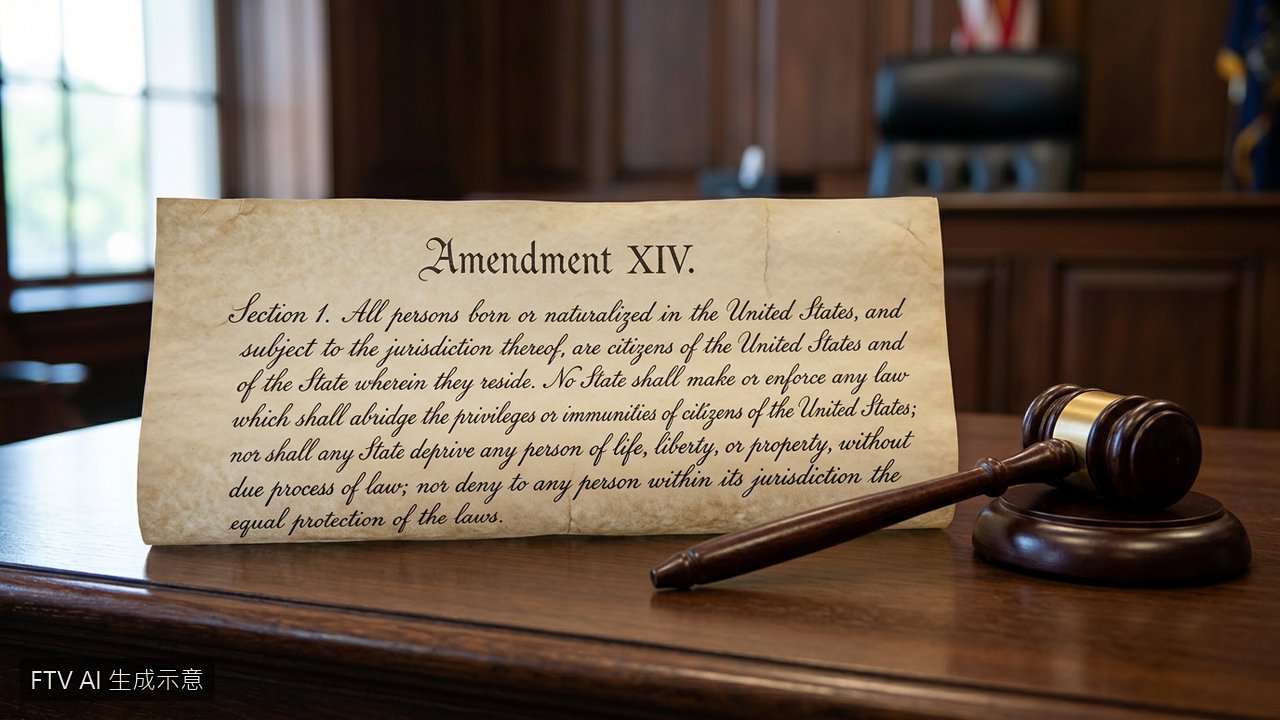 Amendment XIV.
Section 1. All persons born or naturalized in the United States, and
subject to the jurisdiction thereof, are citizens of the United States and
of the State wherein they reside. No State shall make or enforce any law
which shall abridge the privileges or immunities of citizens of the United States;
nor shall any State deprive any person of life, liberty, or property, without
due process of law; nor deny to any person within its jurisdiction the
equal protection of the laws.
FTV AI 生成示意